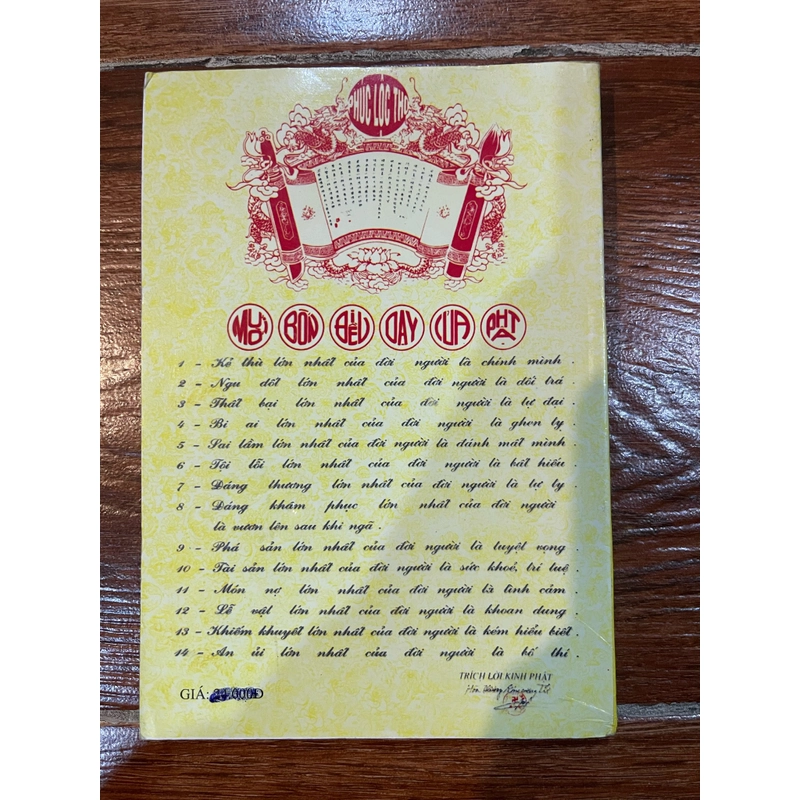 PHÚC LỘC THỌ
MƯỜI BỐN ĐIỀU DẠY CỦA PHẬT
1 - Kẻ thù lớn nhất của đời người là chính mình .
2 - Ngu dốt lớn nhất của đời người là dối trá .
3 - Thất bại lớn nhất của đời người là tự đại .
4 - Bi ai lớn nhất của đời người là ghen tỵ .
5 - Sai lầm lớn nhất của đời người là đánh mất mình .
6 - Tội lỗi lớn nhất của đời người là bất hiếu .
7 - Đáng thương lớn nhất của đời người là tự ty .
8 - Đáng khâm phục lớn nhất của đời người
là vươn lên sau khi ngã .
9 - Phá sản lớn nhất của đời người là tuyệt vọng .
10 - Tài sản lớn nhất của đời người là sức khoẻ, trí tuệ .
11 - Món nợ lớn nhất của đời người là tình cảm .
12 - Lễ vật lớn nhất của đời người là khoan dung .
13 - Khiếm khuyết lớn nhất của đời người là kém hiểu biết .
14 - An ủi lớn nhất của đời người là bố thí .
TRÍCH LỜI KINH PHẬT
GIÁ: .000Đ